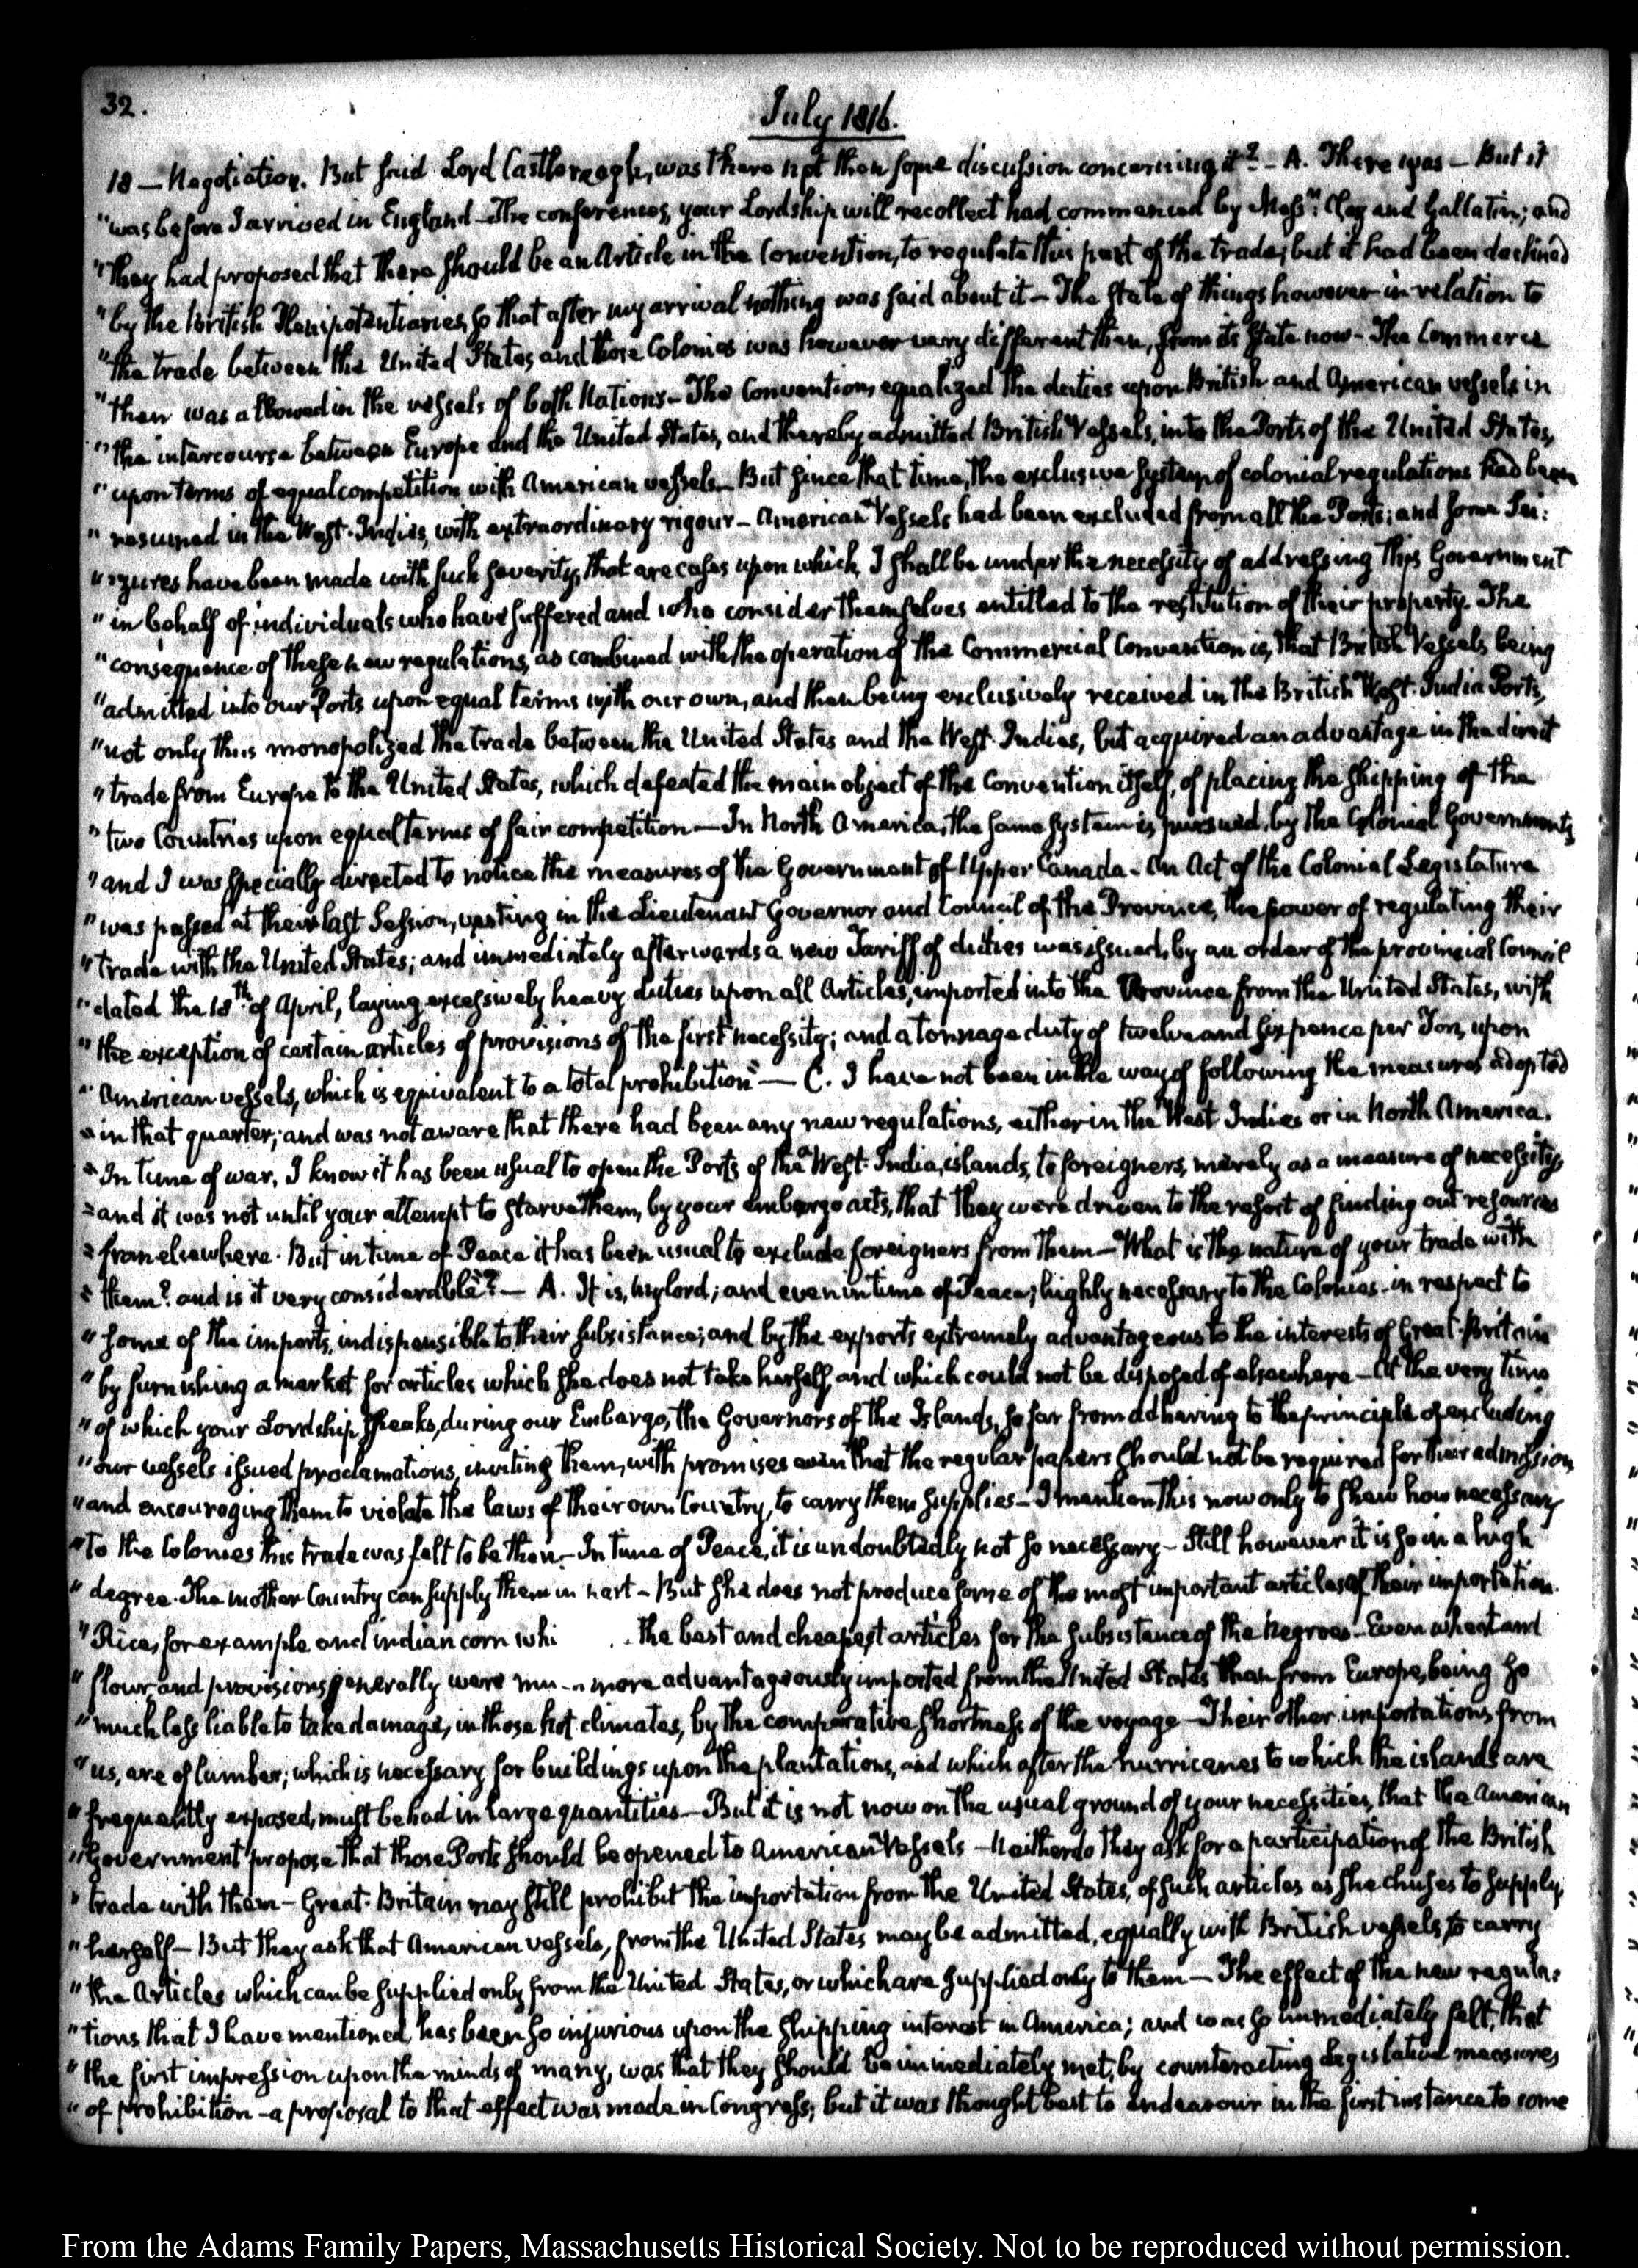 32.
July 1816.
18 — Negotiation. But said Lord Castlereagh, was there not then some discussion concerning it? – A. There was – But it
"was before I arrived in England – The conferences, your Lordship will recollect had commenced by Messrs. Clay and Gallatin; and
"they had proposed that there should be an Article in the Convention, to regulate this part of the trade; but it had been declined
"by the British Plenipotentiaries, so that after my arrival nothing was said about it – The state of things however in relation to
"the trade between the United States and those Colonies was however very different then, from its state now – The Commerce
"then was allowed in the vessels of both Nations – The Convention, equalized the duties upon British and American vessels in
"the intercourse between Europe and the United States, and thereby admitted British Vessels, into the Ports of the United States,
"upon terms of equal competition with American vessels – But since that time, the exclusive system of colonial regulations had been
"resumed in the West-Indies, with extraordinary rigour – American Vessels had been excluded from all the Ports; and some Sei:
"zures have been made with such severity, that are cases upon which, I shall be under the necessity of addressing this Government
"in behalf of individuals who have suffered and who consider themselves entitled to the restitution of their property. The
"consequence of these new regulations, as combined with the operation of the Commercial Convention is, that British Vessels being
"admitted into our Ports upon equal terms with our own, and then being exclusively received in the British West-India Ports,
"not only thus monopolized the trade between the United States and the West-Indies, but acquired an advantage in the direct
"trade from Europe to the United States, which defeated the main object of the Convention itself, of placing the shipping of the
"two Countries upon equal terms of fair competition — In North America, the same system is pursued, by the Colonial Governments
"and I was specially directed to notice the measures of the Government of Upper Canada – An Act of the Colonial Legislature
"was passed at their last Session, vesting in the Lieutenant Governor and Council of the Province, the power of regulating their
"trade with the United States; and immediately afterwards a new Tariff of duties was issued, by an order of the provincial Council
"dated the 18th. of April, laying excessively heavy duties upon all Articles, imported into the Province from the United States, with
"the exception of certain articles of provisions of the first necessity; and a tonnage duty of twelve and sixpence per Ton, upon
"American vessels, which is equivalent to a total prohibition" — C. I have not been in the way of following the measures adopted
"in that quarter; and was not aware that there had been any new regulations, either in the West Indies or in North America.
"In time of war, I know it has been usual to open the Ports of the West-India islands, to foreigners, merely as a measure of necessity,
"and it was not until your attempt to starve them, by your embargo acts, that they were driven to the resort of finding out resources
"from elsewhere. But in time of Peace it has been usual to exclude foreigners from them – What is the nature of your trade with
"them? and is it very considerable?" — A. It is, my lord; and even in time of Peace; highly necessary to the Colonies – in respect to
"some of the imports, indispensible to their subsistance; and by the exports extremely advantageous to the interests of Great-Britain
"by furnishing a market for articles which she does not take herself, and which could not be disposed of elsewhere – At the very time
"of which your Lordship speaks, during our Embargo, the Governors of the Islands, so far from adhering to the principle of excluding
"our vessels issued proclamations, inviting them, with promises even that the regular papers should not be required for their admission,
"and encouraging them to violate the laws of their own Country, to carry them supplies – I mention this now only to shew how necessary
"to the Colonies this trade was felt to be then. – In time of Peace, it is undoubtedly not so necessary – Still however it is so in a high
"degree. The mother Country can supply them in part – But she does not produce some of the most important articles of their importation.
"Rice, for example and indian corn whi the best and cheapest articles for the subsistance of the Negroes – Even wheat and
"flour, and provisions generally were mu more advantageously imported from the United States than from Europe, being so
"much less liable to take damage, in those hot climates, by the comparative shortness of the voyage – Their other importations from
"us, are of lumber; which is necessary for buildings upon the plantations, and which after the hurricanes to which the islands are
"frequently exposed, must be had in large quantities – But it is not now on the usual ground of your necessities, that the American
"Government propose that those Ports should be opened to American Vessels – Neither do they ask for a participation of the British
"trade with them – Great-Britain may still prohibit the importation from the United States, of such articles as she chuses to supply,
"herself – But they ask that American vessels, from the United States may be admitted, equally with British vessels, to carry
"the Articles which can be supplied only from the United States, or which are supplied only to them — The effect of the new regula-
"tions that I have mentioned, has been so injurious upon the shipping interest in America; and was so immediately felt, that
"the first impression upon the minds of many, was that they should be immediately met, by counteracting Legislative measures
"of prohibition – a proposal to that effect was made in Congress; but it was thought best to endeavour in the first instance to some
From the Adams Family Papers, Massachusetts Historical Society. Not to be reproduced without permission.